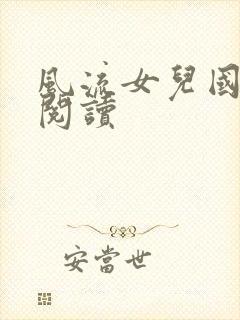 風流女兒國
閱讀
安當世